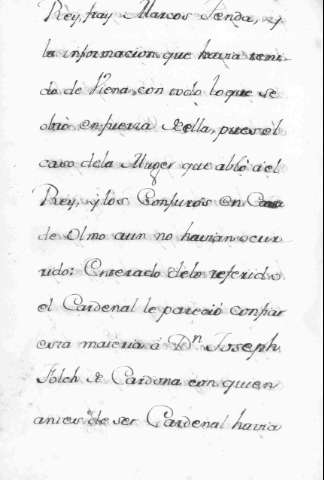 Rey, fray Marcos Tenda, y
la informacion que havia teni-
do de Viena, con todo lo que se
obró en fuerza de ella, pues el
caso de la Muger que abló á el
Rey, y los Conjuros en Casa
de Olmo aun no havian ocur
rido: Enterado de lo referido
el Cardenal le pareció confiar
esta materia á Dn. Joseph
Folch de Cardona con quien
antes de ser Cardenal havia